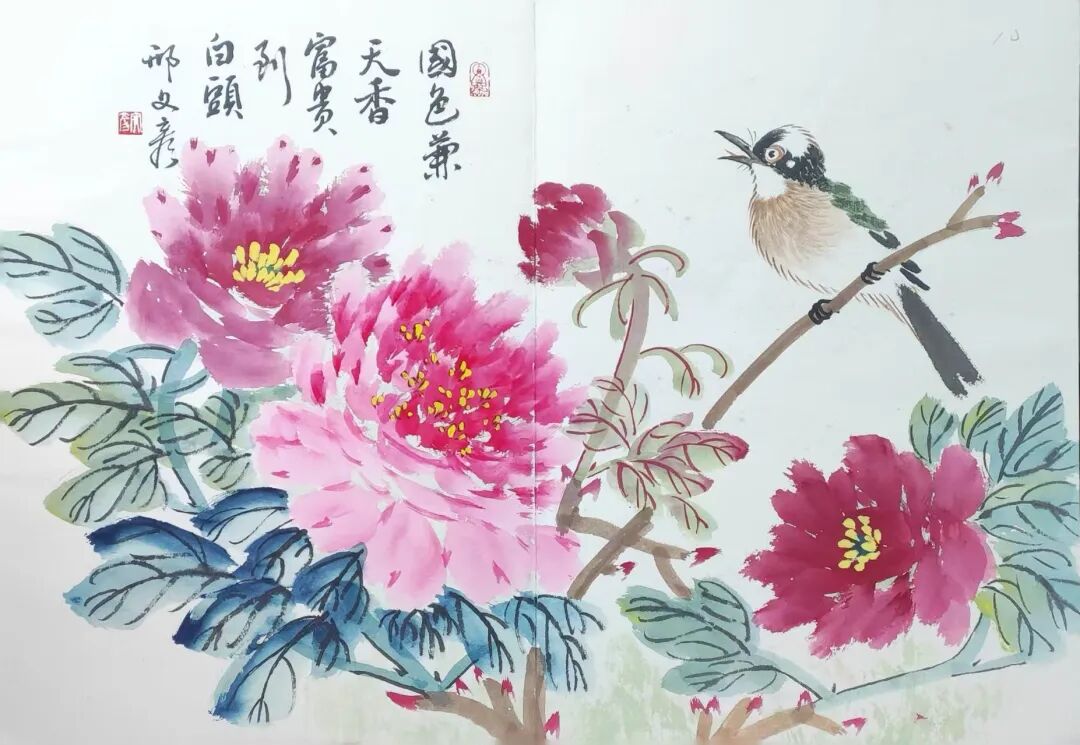 國色兼
天香
富贵
到
白頭
邢文彦